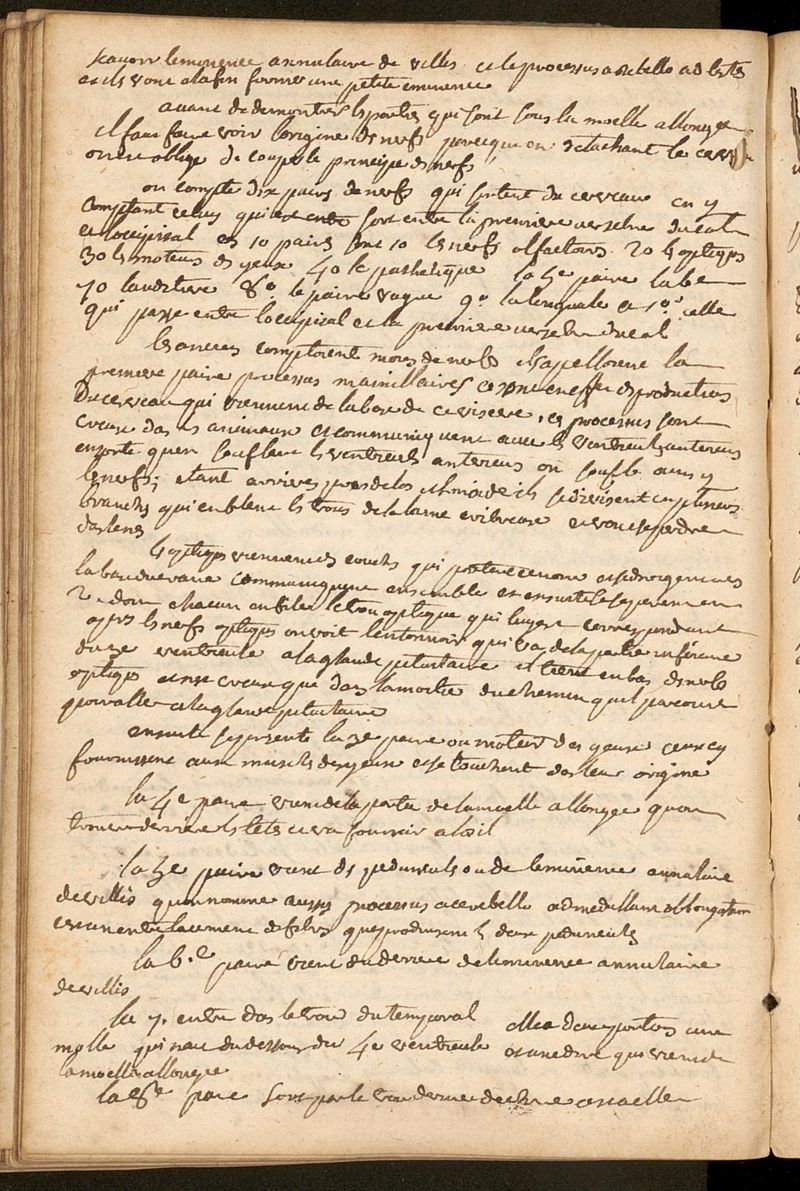 scavoir leminence annulaire de villis et le processus a cerebello ad testes
et ils vont alafin former une petite eminence
avant de demontrer les parties qui sont sous la moelle allongee
il faut faire voir lorigine des nerfs parceque en detachant le cerveau
on est oblige de couper le principe des nerfs
on compte dix paires de nerfs qui sortent du cerveau en y
comptant celuy qui sort entre la premiere vertebre du col
et loccipital ces 10 paires sont 1o les nerfs olfactoirs 2o les optiques
3o les moteurs des yeux 4o le pathetique la 5e paire la 6e
7o lauditive 8o la paire vague 9o la linguale et 10o celle
qui passe entre loccipital et la premiere vertebre du col
les anciens comptoient moins de nerfs ils appelloient la
premiere paire processus mamillaires ce sont en effet des productions
du cerveau qui viennent de la base de ce viscere, ces processus sont
creux dans les animaux et communiquent avec les ventricules anterieurs
ensorte quen soufflant les ventricules anterieurs on souffle aussy
les nerfs; etant arrivés pres de los ethmoide ils se divisent en plusieurs
branches qui enfilent les trous de la lame cribreuse et vont se perdre
dans le nes
les optiques viennent des couches qui portent ce nom
communiquent ensemble et ensuite se separent en
2. dont chacun enfile le trou optique qui luy est correspondant
apres les nerfs optiques on voit lentonnoir qui va de la partie inferieure
du 3e ventricule a la glande pituitaire et tient en bas des nerfs
optiques et nest creux que dans la moitie du chemin quil parcourt
pour aller a la glande pituitaire
ensuite se presente la 3e paire ou moteur des yeux ceux cy
fournissent aux muscles des yeux et se touchent dans leur origine
la 4e paire vient de la partie de la moelle allongee quon
trouve derriere les testes et va fournir a loeil
la 5e paire vient des peduncules ou de leminence annulaire
de villis quon nomme aussy processus a cerebello ad medullam oblongatam
cest un entrelacement de fibres que produisent les deux peduncules
la 6.e paire vient du derriere de leminence annulaire
de villis
la 7. entre dans le trou du temporal elle a deux portions une
molle qui nait du dessous du 4e ventricule et une dure qui vient de
la moelle allongee
la 8e paire sort par le trou dechiré et elle